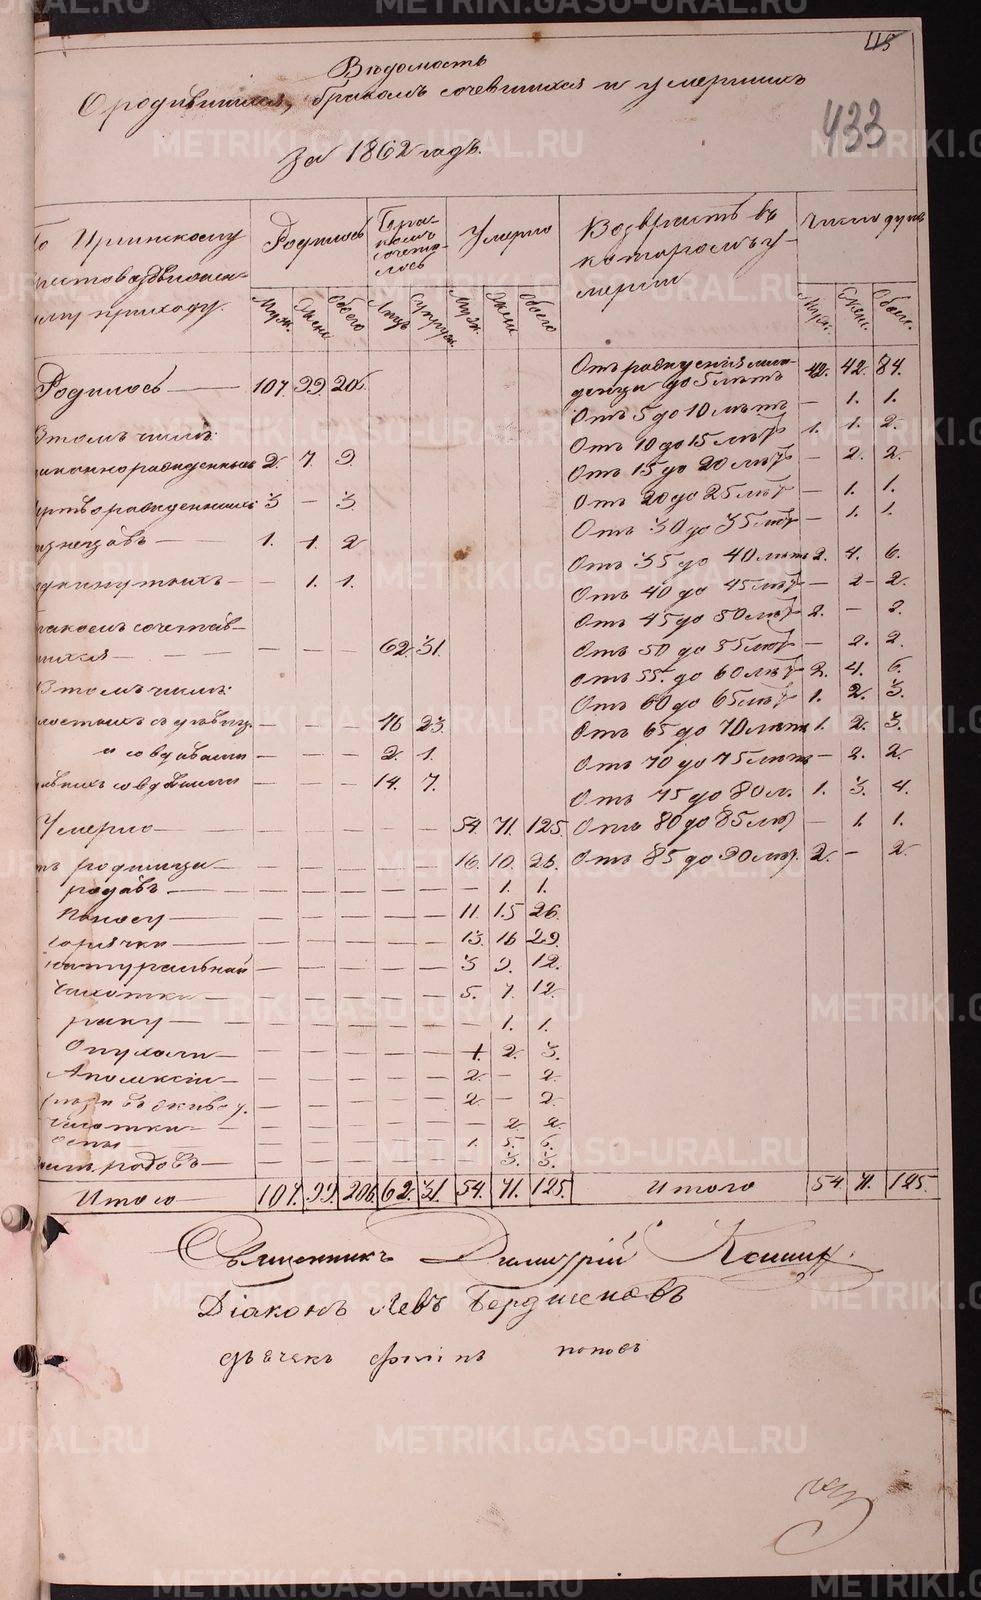 115
433
Вѣдомость
О родившихся, бракомъ сочетавшихся и умершихъ
За 1862 годъ.
По Иргинскому
приходу.
Родилось
Муж. Жен. Обоего
Бракомъ сочеталось
Лицъ Супруж.
Умерло
Муж. Жен. Обоего
Возрастъ въ
которомъ у-
мерли
Число душъ
Муж. Жен. Обоего.
Родилось — 107. 99. 206.
В томъ числѣ:
законнорожденныхъ 2. 7. 9.
мертворожденныхъ 3 — 3.
1. 1. 2
— 1. 1.
бракомъ сочетав-
шихся — — — — 62. 31.
В томъ числѣ:
холостыхъ съ дѣвиц. — — — 46 23.
и со вдовами — — — 2. 1.
со вдовами — — — 14. 7.
Умерло — — — — — 54. 71. 125.
отъ родимца — — — — — 16. 10. 26.
родовъ — — — — — — 1. 1.
поносу — — — — — 11. 15 26.
горячки — — — — — 13. 16 29.
натуральной — — — — — 3 9. 12.
чахотки — — — — — 5. 7. 12.
раку — — — — — — 1. 1.
Опухоли — — — — — 1. 2. 3.
Апоплексіи — — — — — 2. — 2.
— — — — — 2. — 2.
— — — — — — 2. 2.
оспы — — — — — 1. 5. 6.
родовъ — — — — — — 3. 3.
Итого 107. 99. 206. 62. 31. 54. 71. 125.
Отъ рожденія мла-
денцы до 5 лѣтъ 42. 42. 84.
Отъ 5 до 10 лѣтъ — 1. 1.
Отъ 10 до 15 лѣтъ 1. 1. 2.
Отъ 15 до 20 лѣтъ — 2. 2.
Отъ 20 до 25 лѣтъ — 1. 1.
Отъ 30 до 35 лѣтъ — 1. 1.
Отъ 35 до 40 лѣтъ 2. 4. 6.
Отъ 40 до 45 лѣтъ — 2 2.
Отъ 45 до 50 лѣтъ 2. — 2.
Отъ 50 до 55 лѣтъ — 2. 2.
Отъ 55. до 60 лѣтъ 2. 4. 6.
Отъ 60 до 65 лѣтъ 1. 2. 3.
Отъ 65 до 70 лѣтъ 1. 2. 3.
Отъ 70 до 75 лѣтъ — 2. 2.
Отъ 75 до 80 л. 1. 3. 4.
Отъ 80 до 85 лѣтъ — 1. 1.
Отъ 85 до 90 лѣтъ. 2. — 2.
Итого 54. 71. 125.
Священникъ Димитрій
Діаконъ Левъ
дьячекъ поповъ
METRIKI.GASO-URAL.RU